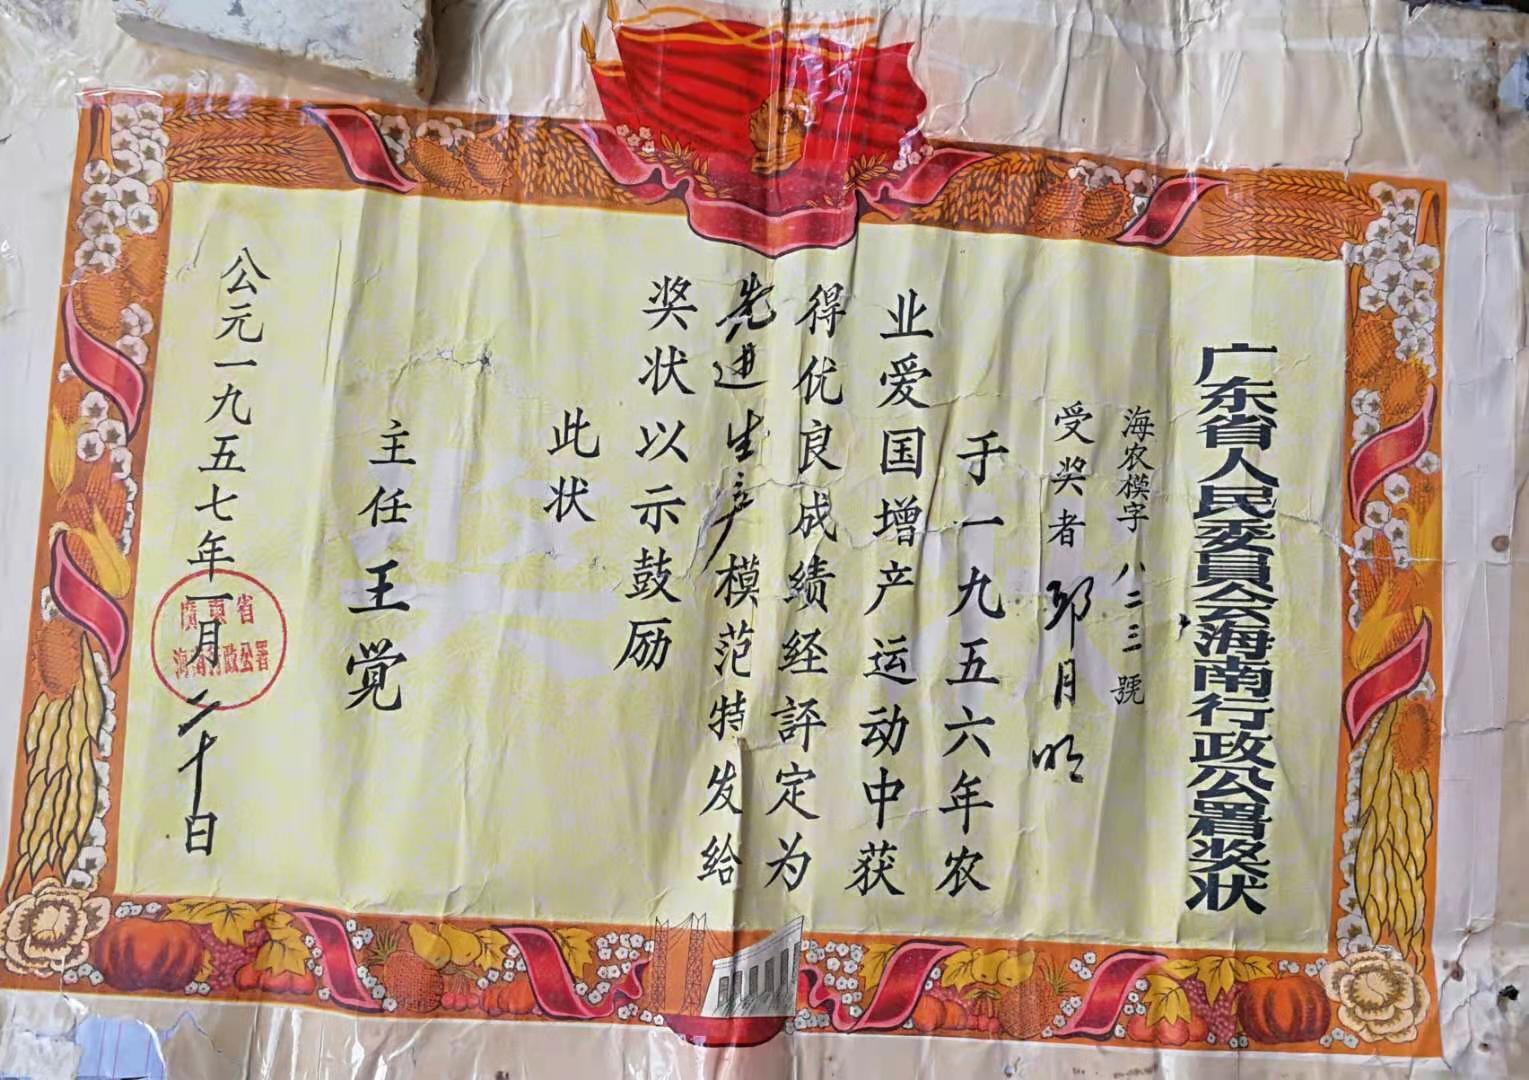 广东省人民委員会海南行政公署奖状
海农模字八二三號
受奖者 邱月明
于一九五六年农
业爱国增产运动中获
得优良成绩经評定为
先进生产模范特发给
奖状以示鼓励
此状
主任王觉
公元一九五七年一月二十日
廣東省
海南行政公署